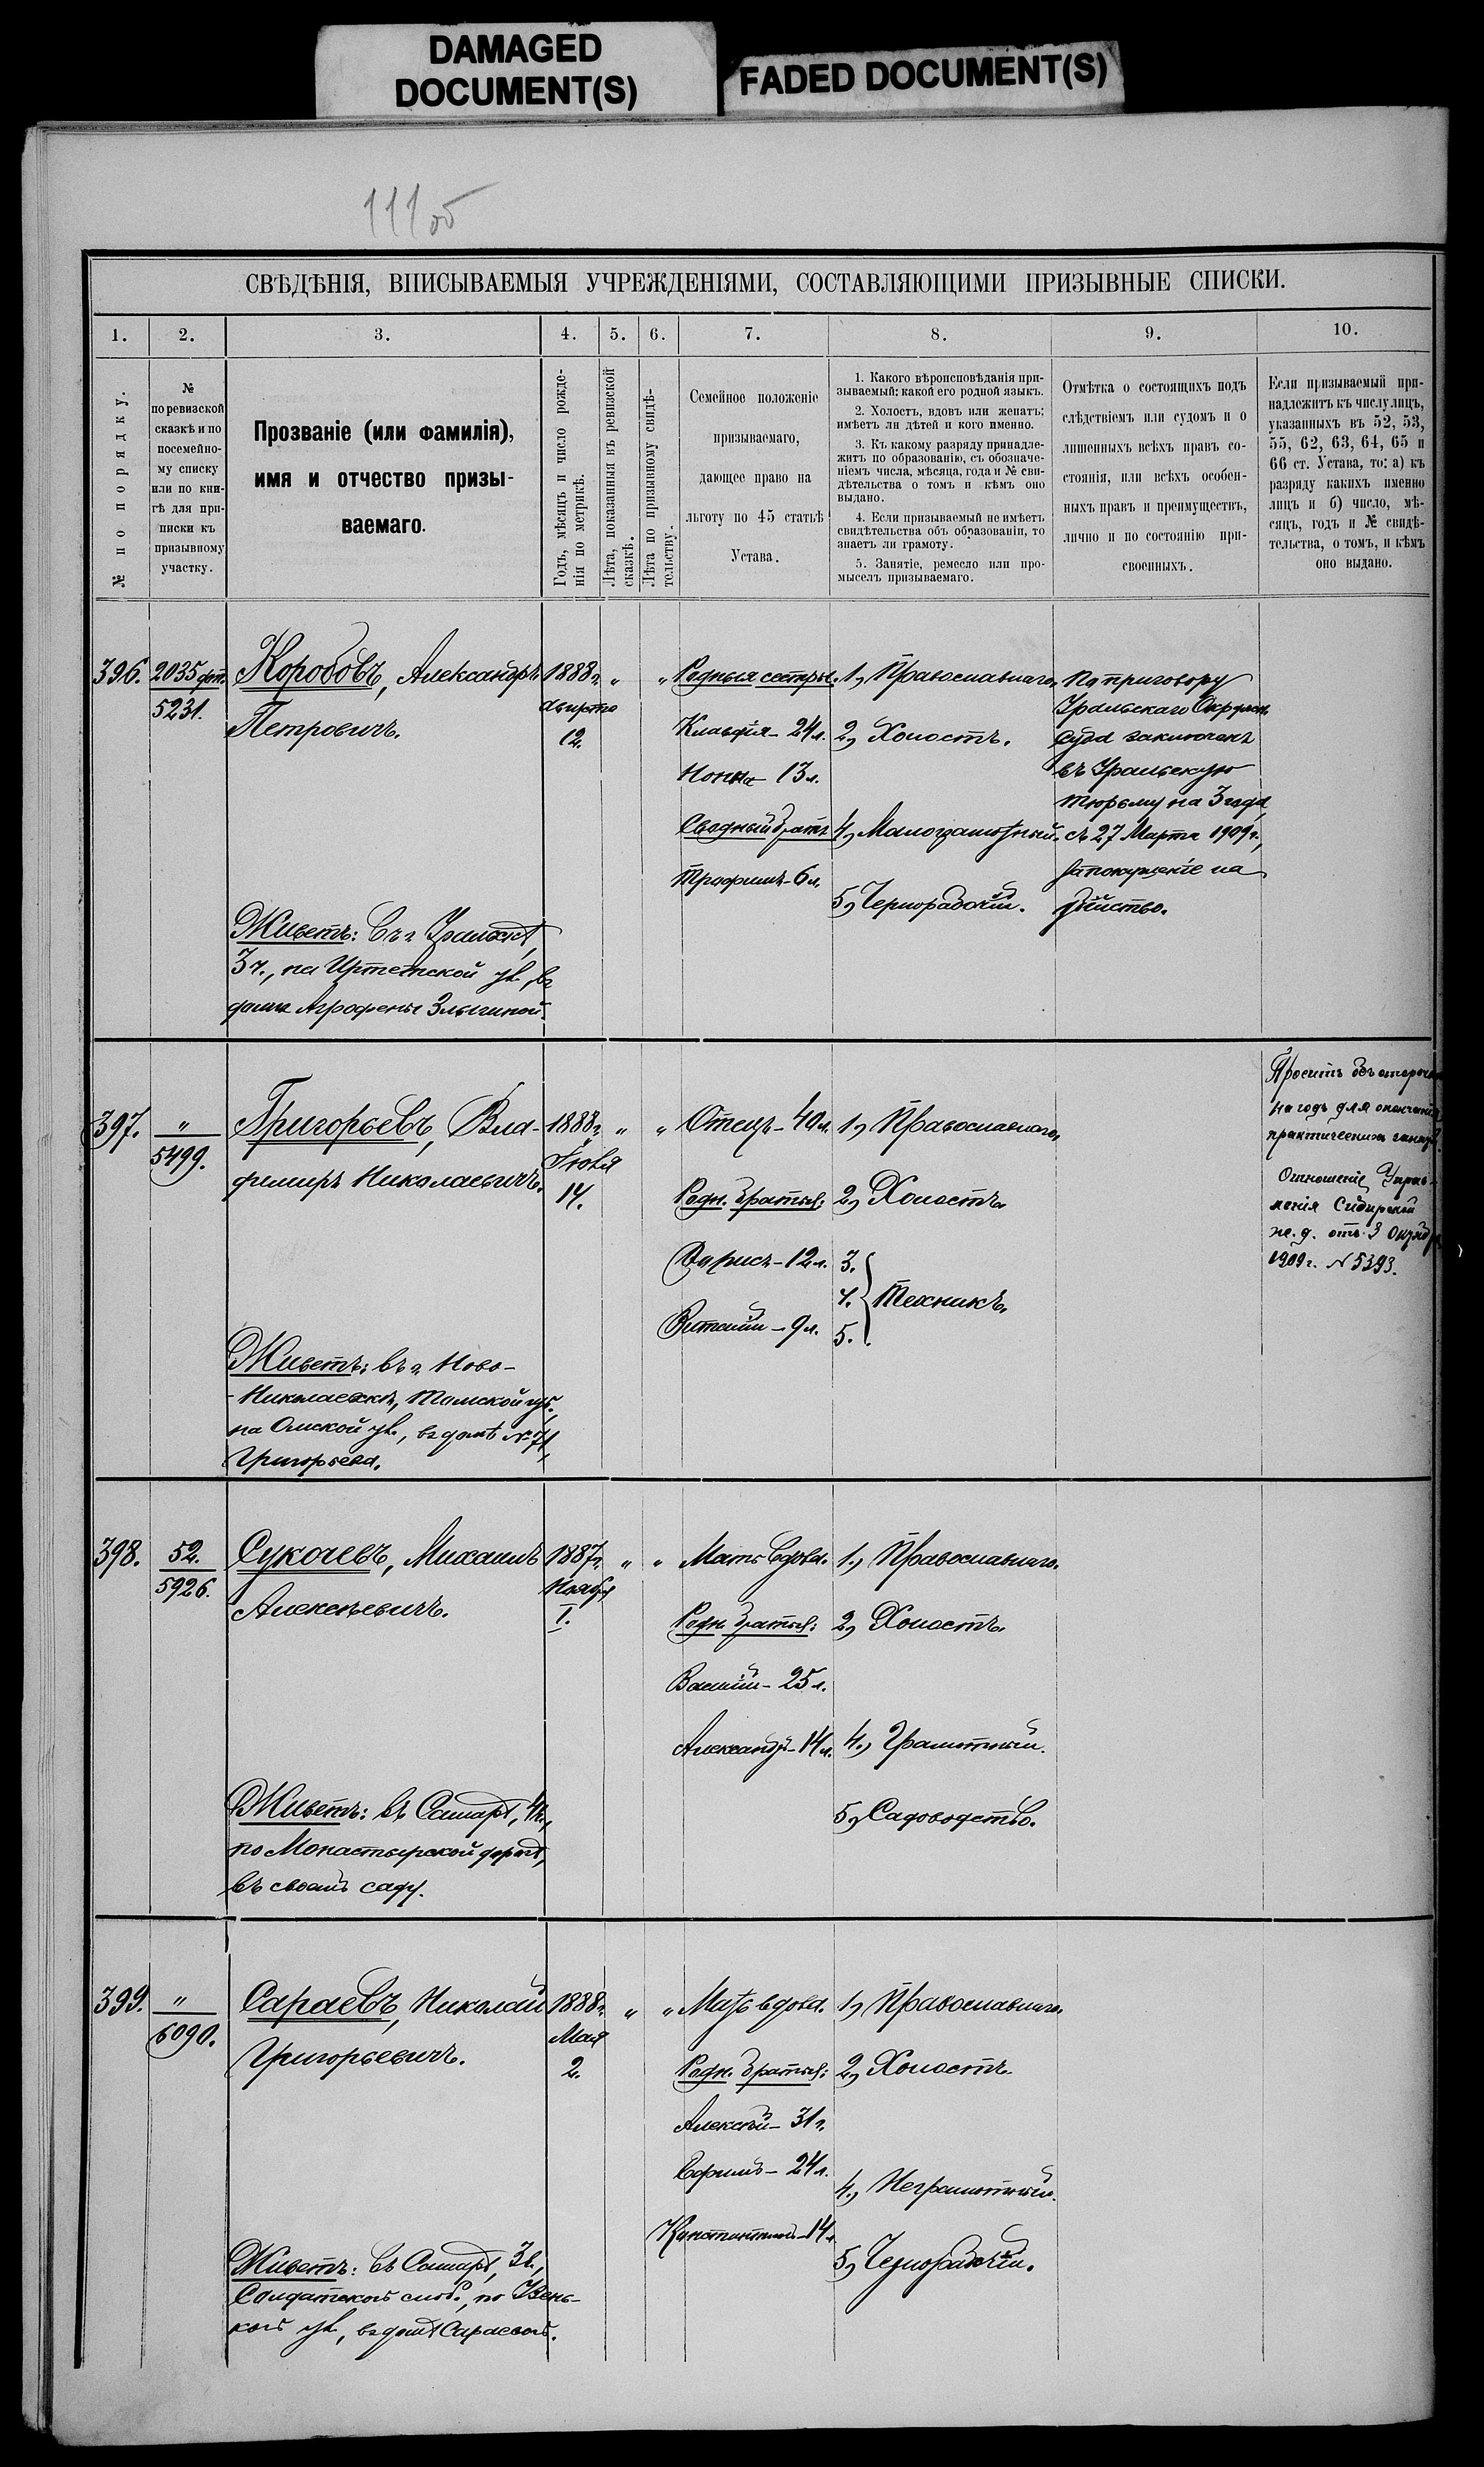 DAMAGED
DOCUMENT(S)
FADED DOCUMENT(S)
111об
СВѢДѢНІЯ, ВПИСЫВАЕМЫЯ УЧРЕЖДЕНІЯМИ, СОСТАВЛЯЮЩИМИ ПРИЗЫВНЫЕ СПИСКИ.
1. 2. 3. 4. 5. 6. 7. 8. 9. 10.
№ по порядку.
№
по ревизской
сказкѣ и по
посемейно-
му списку
или по кни-
гѣ для при-
писки къ
призывному
участку.
Прозваніе (или фамилія),
имя и отчество призы-
ваемаго.
Годъ, мѣсяцъ и число рожде-
нія по метрикѣ.
Лѣта, показанныя въ ревизской
сказкѣ.
Лѣта по призывному свидѣ-
тельству.
Семейное положеніе
призываемаго,
дающее право на
льготу по 45 статьѣ
Устава.
1. Какого вѣроисповѣданія при-
зываемый: какой его родной языкъ.
2. Холостъ, вдовъ или женатъ:
имѣетъ ли дѣтей и кого именно.
3. Къ какому разряду принадле-
житъ по образованію, съ обозначе-
ніемъ числа, мѣсяца, года и № сви-
дѣтельства о томъ и кѣмъ оно
выдано.
4. Если призываемый не имѣетъ
свидѣтельства объ образованіи, то
знаетъ ли грамоту.
5. Занятіе, ремесло или про-
мыселъ призываемаго.
Отмѣтка о состоящихъ подъ
слѣдствіемъ или судомъ и о
лишенныхъ всѣхъ правъ со-
стоянія, или всѣхъ особен-
ныхъ правъ и преимуществъ,
лично и по состоянію при-
своенныхъ.
Если призываемый при-
надлежитъ къ числу лицъ,
указанныхъ въ 52, 53,
55, 62, 63, 64, 65 и
66 ст. Устава, то: а) къ
разряду какихъ именно
лицъ и б) число, мѣ-
сяцъ, годъ и № свидѣ-
тельства, о томъ, и кѣмъ
оно выдано.
396.
2035
5231.
Коробовъ, Александръ
Петровичъ.
1888г.
Августа
12.
"
"
Родныя сестры:
Клавдія - 24л.
Нонна - 13л.
Сводный братъ
Трофимъ - 6л.
1, Православнаго,
2, Холостъ.
4, Малограмотный.
5, Чернорабочій.
По приговору
Уральскаго Окружн.
Суда заключенъ
въ Уральскую
тюрьму на 3 года,
съ 27 Марта 1909г.,
за покушеніе на
убійство.
Живетъ: въ г. Уральскѣ,
3ч., на Иртетской ул., въ
домѣ Агрофены
397.
"
5499.
Григорьевъ, Вла-
димиръ Николаевичъ.
1888г.
Іюля
14.
"
"
Отецъ - 40л.
Родн. братья:
Борисъ - 12л.
Виталій - 9л.
1, Православнаго,
2, Холостъ.
3.
4. } Техникъ.
5.
Проситъ объ отсрочкѣ
на годъ для окончанія
практическихъ
Отношеніе Управ-
ленія Сибирской
ж.д. отъ 3 Октября
1909г. № 5393.
Живетъ: въ г. Ново-
-Николаевскѣ, Томской губ.,
на Омской ул., въ домѣ № 71,
Григорьева.
398.
52.
5926.
Сукачевъ, Михаилъ
Алексѣевичъ.
1887г.
Ноября
1.
"
"
Мать вдова.
Родн. братья:
Василій - 25л.
Александръ - 14л.
1., Православнаго.
2, Холостъ.
4., Грамотный.
5, Садоводство.
Живетъ: въ Самарѣ, 4ч.,
по Монастырской дорогѣ,
въ своемъ саду.
399.
"
6090.
Сараевъ, Николай
Григорьевичъ.
1888г.
Мая
2.
"
"
Мать вдова.
Родн. братья:
Алексѣй - 31г.
Ефимъ - 24л.
Константинъ - 14л.
1, Православнаго.
2, Холостъ.
4., Неграмотный.
5, Чернорабочій.
Живетъ: въ Самарѣ, 3ч.,
Солдатской слоб., по
кой ул., въ домѣ Сараевой.